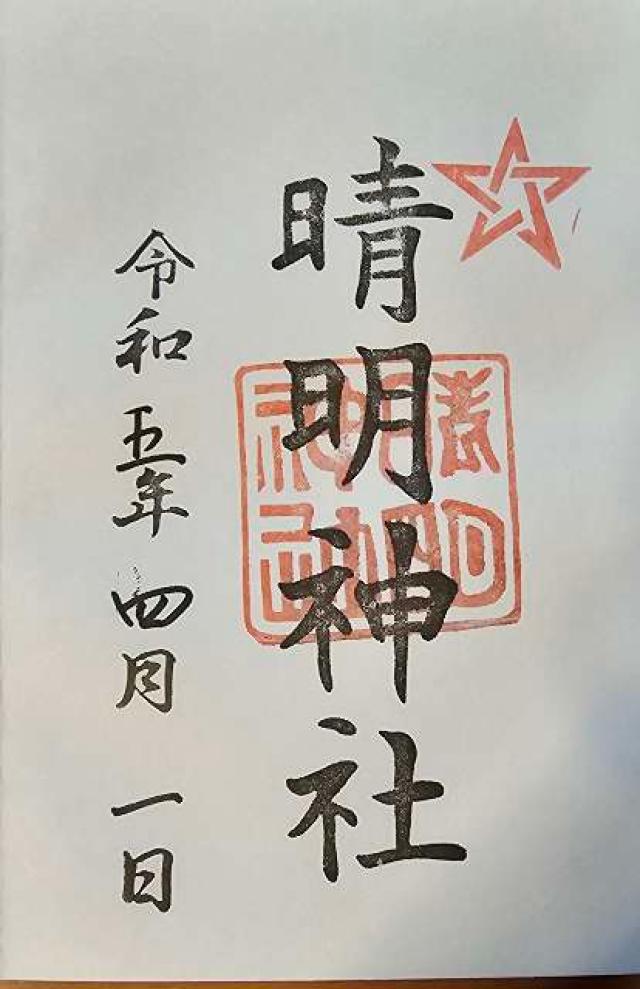 晴明神社
晴明
神社
令和五年四月一日